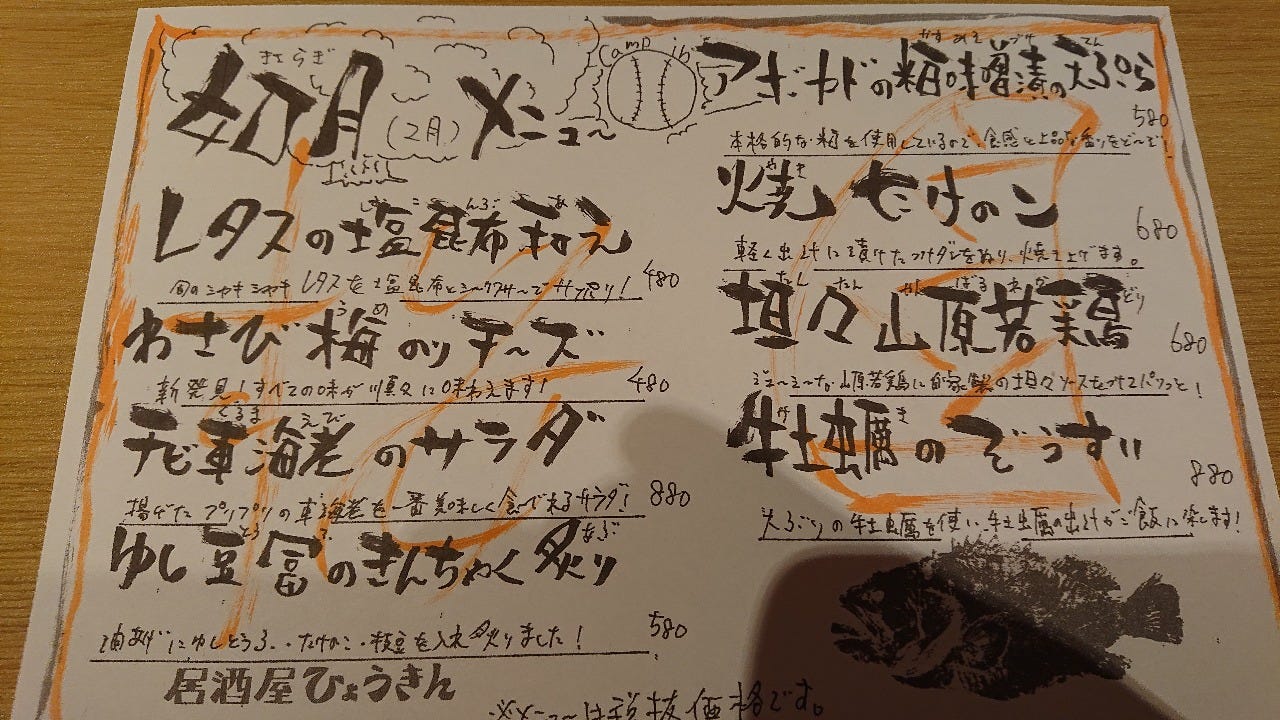 如月(2月)メニュー
きさらぎ
Camp in
レタスの塩昆布和え
しおこんぶあ
旬のシャキシャキレタスを塩昆布とシークヮサーでサッパリ! 480
わさび梅のりチーズ
うめ
新発見!すべての味が順々に味わえます! 480
チビ車海老のサラダ
くるまえび
揚げたプリプリの車海老を一番美味しく食べれるサラダ! 880
ゆし豆富のきんちゃく炙り
とうふ あぶ
油あげにゆしとうふ・たけのこ・枝豆を入れ炙りました! 580
居酒屋ひょうきん
アボカドの粕味噌漬の天ぷら
かすみそづけ てん
580
本格的な粕を使用しているので、食感と上品な香りをど〜ぞ!
焼たけのこ
やき
680
軽く出汁に漬けた をぬり、焼き上げます。
坦々山原若鶏
たんたんやんばるわかどり
680
ジューシーな山原若鶏に自家製の坦々ソースをつけてパクッと!
牡蠣のぞうすい
かき
880
大ぶりの牡蠣を使い、牡蠣の出汁がご飯に染します!
※メニューは税抜価格です。